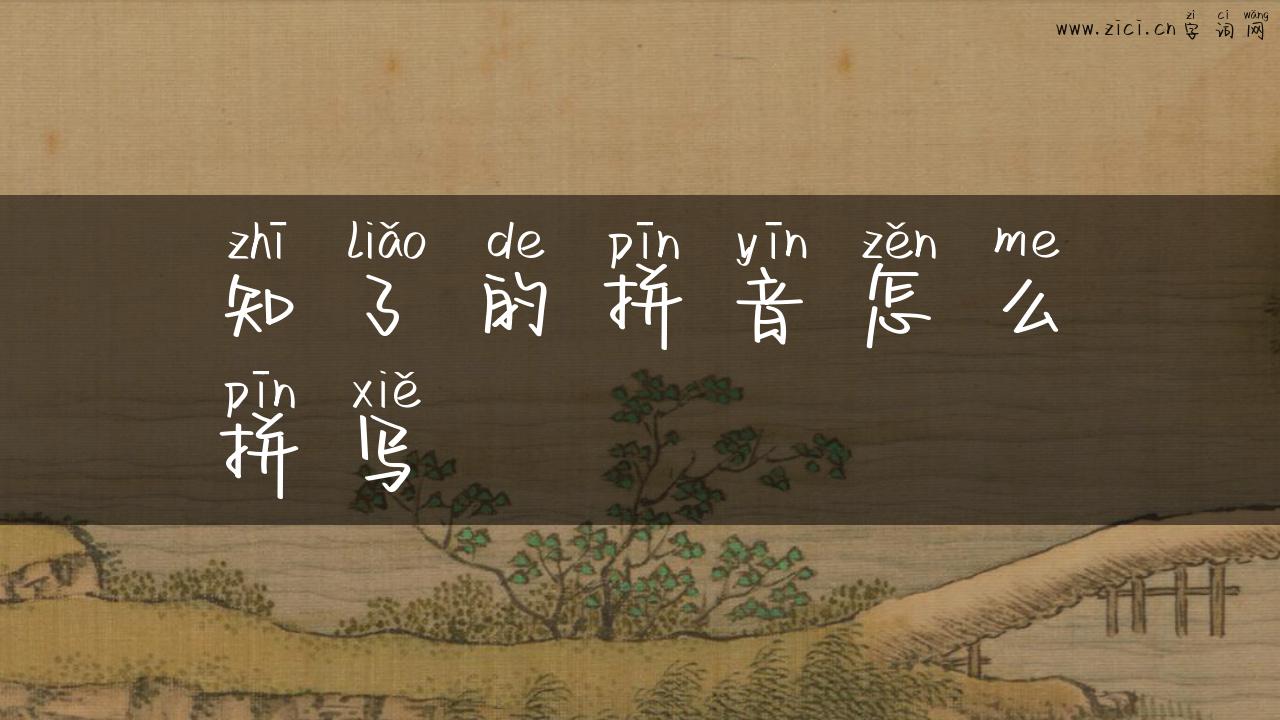 zì cí wǎng
www.zici.cn 字词网
zhī liǎo de pīn yīn zěn me
知了的拼音怎么
pīn xiě
拼写